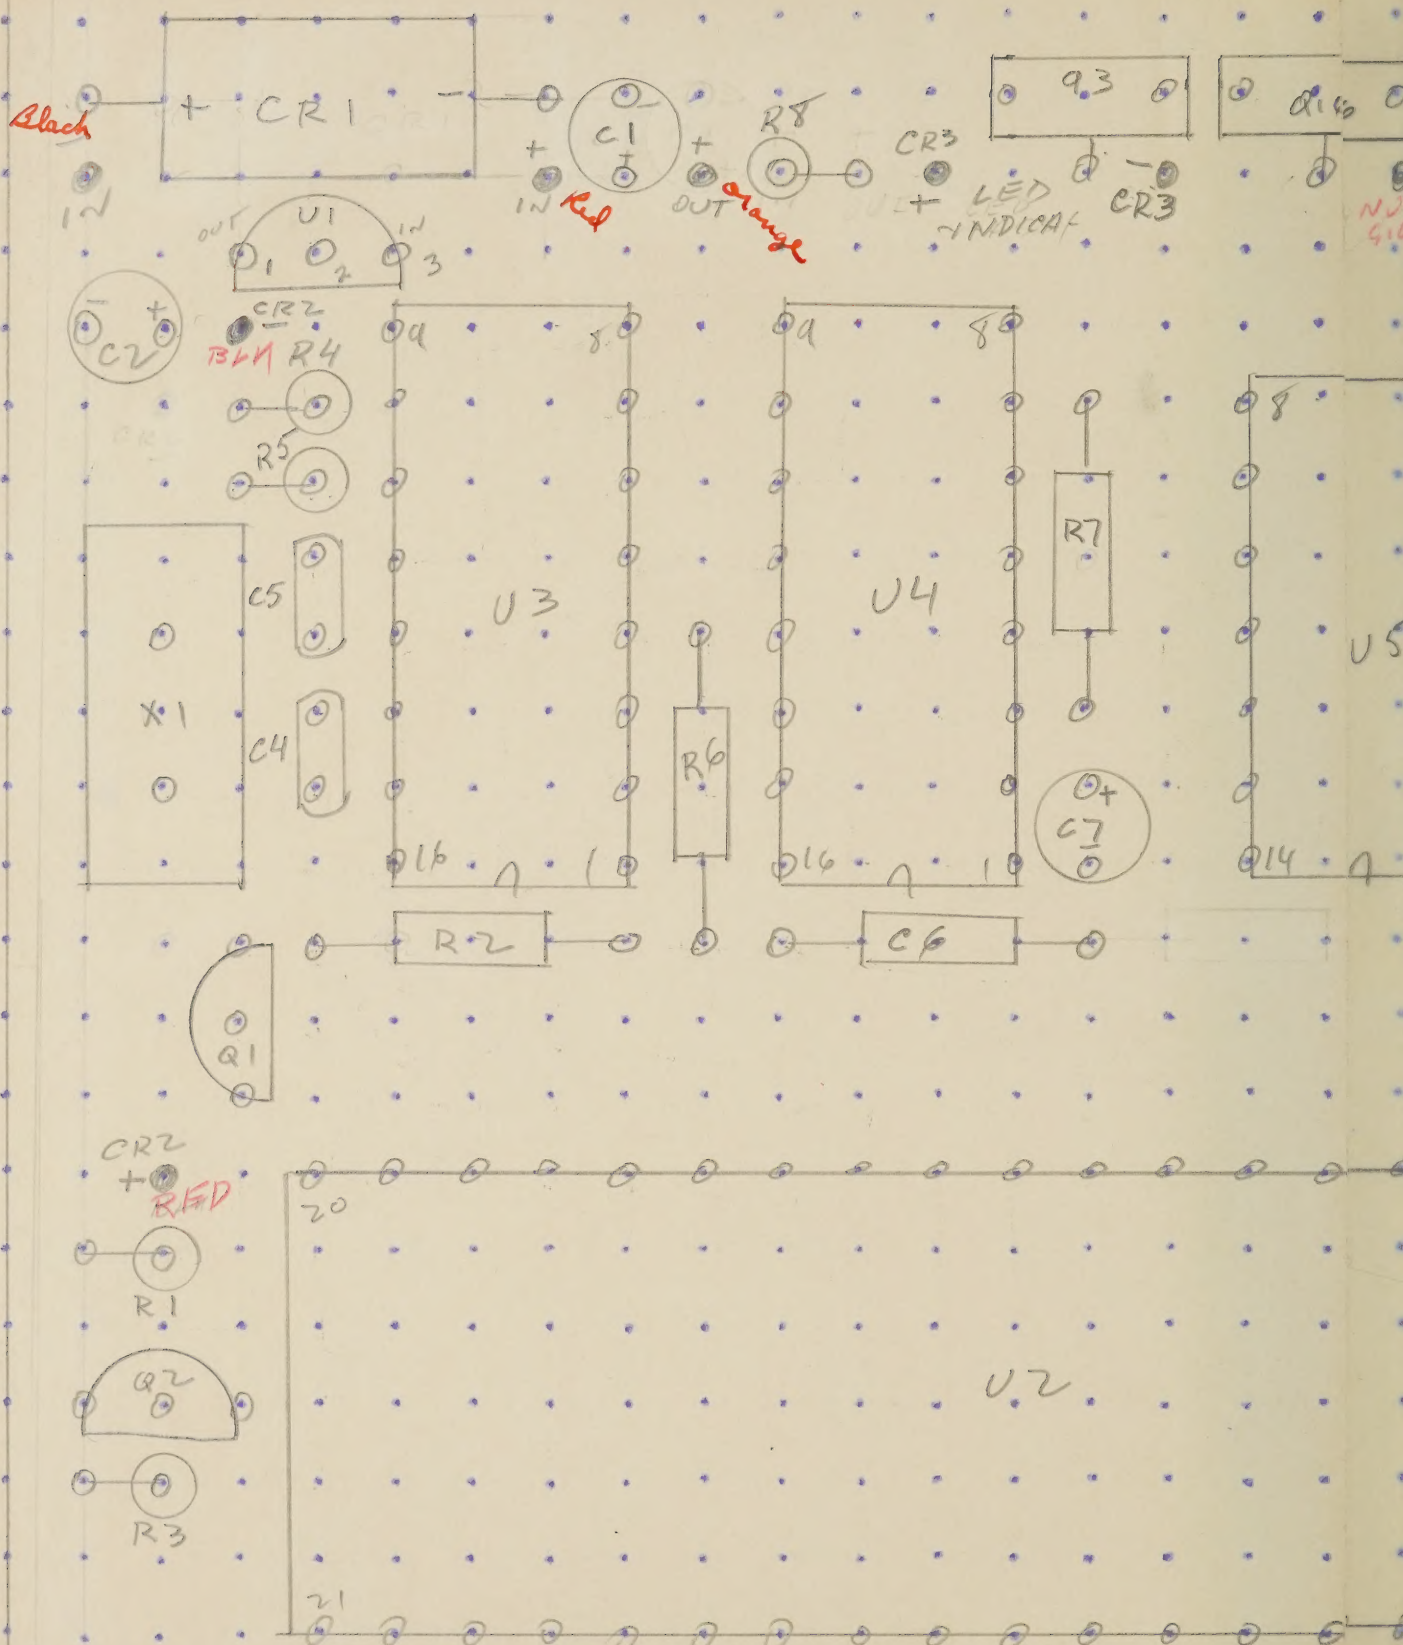 Black
+ CR1 -
IN
+
IN Red
-
C1
+
+
OUT orange
R8
CR3
+
LED
INDICAT
Q3
-
CR3
OUT U1 IN
1 2 3
- +
C2
CR2
-
BLK
R4
R5
9 8
U3
16 1
9 8
U4
16 1
R7
8
U5
14
C5
X1
C4
R6
+
C7
-
R2
C6
Q1
CR2
+
RED
R1
Q2
R3
20
U2
21